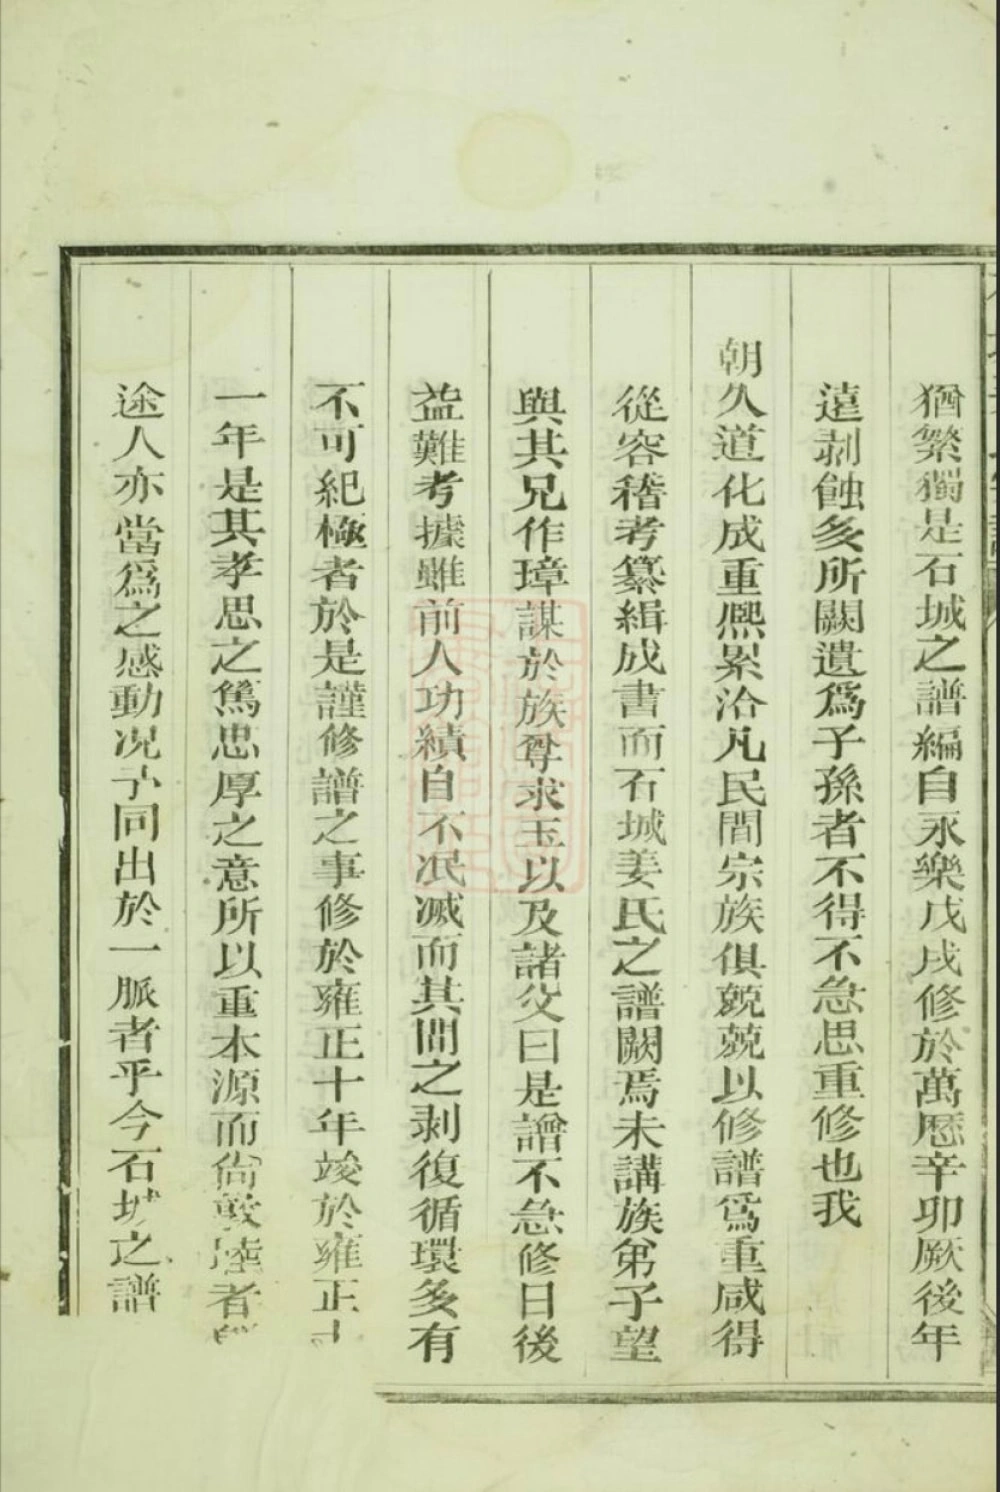 猶繁獨是石城之譜編自永樂戊戌修於萬曆辛卯厥後年
遠剥蝕多所闕遺爲子孫者不得不急思重修也我
朝久道化成重熙累洽凡民間宗族俱兢兢以修譜爲重咸得
從容稽考纂緝成書而石城姜氏之譜闕焉未講族弟子望
與其兄作璋謀於族尊求玉以及諸父曰是譜不急修日後
益難考據雖前人功績自不泯滅而其間之剥復循環多有
不可紀極者於是謹修譜之事修於雍正十年竣於雍正十
一年是其孝思之篤忠厚之意所以重本源而尚敦陸者
途人亦當爲之感動况予同出於一脈者乎今石城之譜